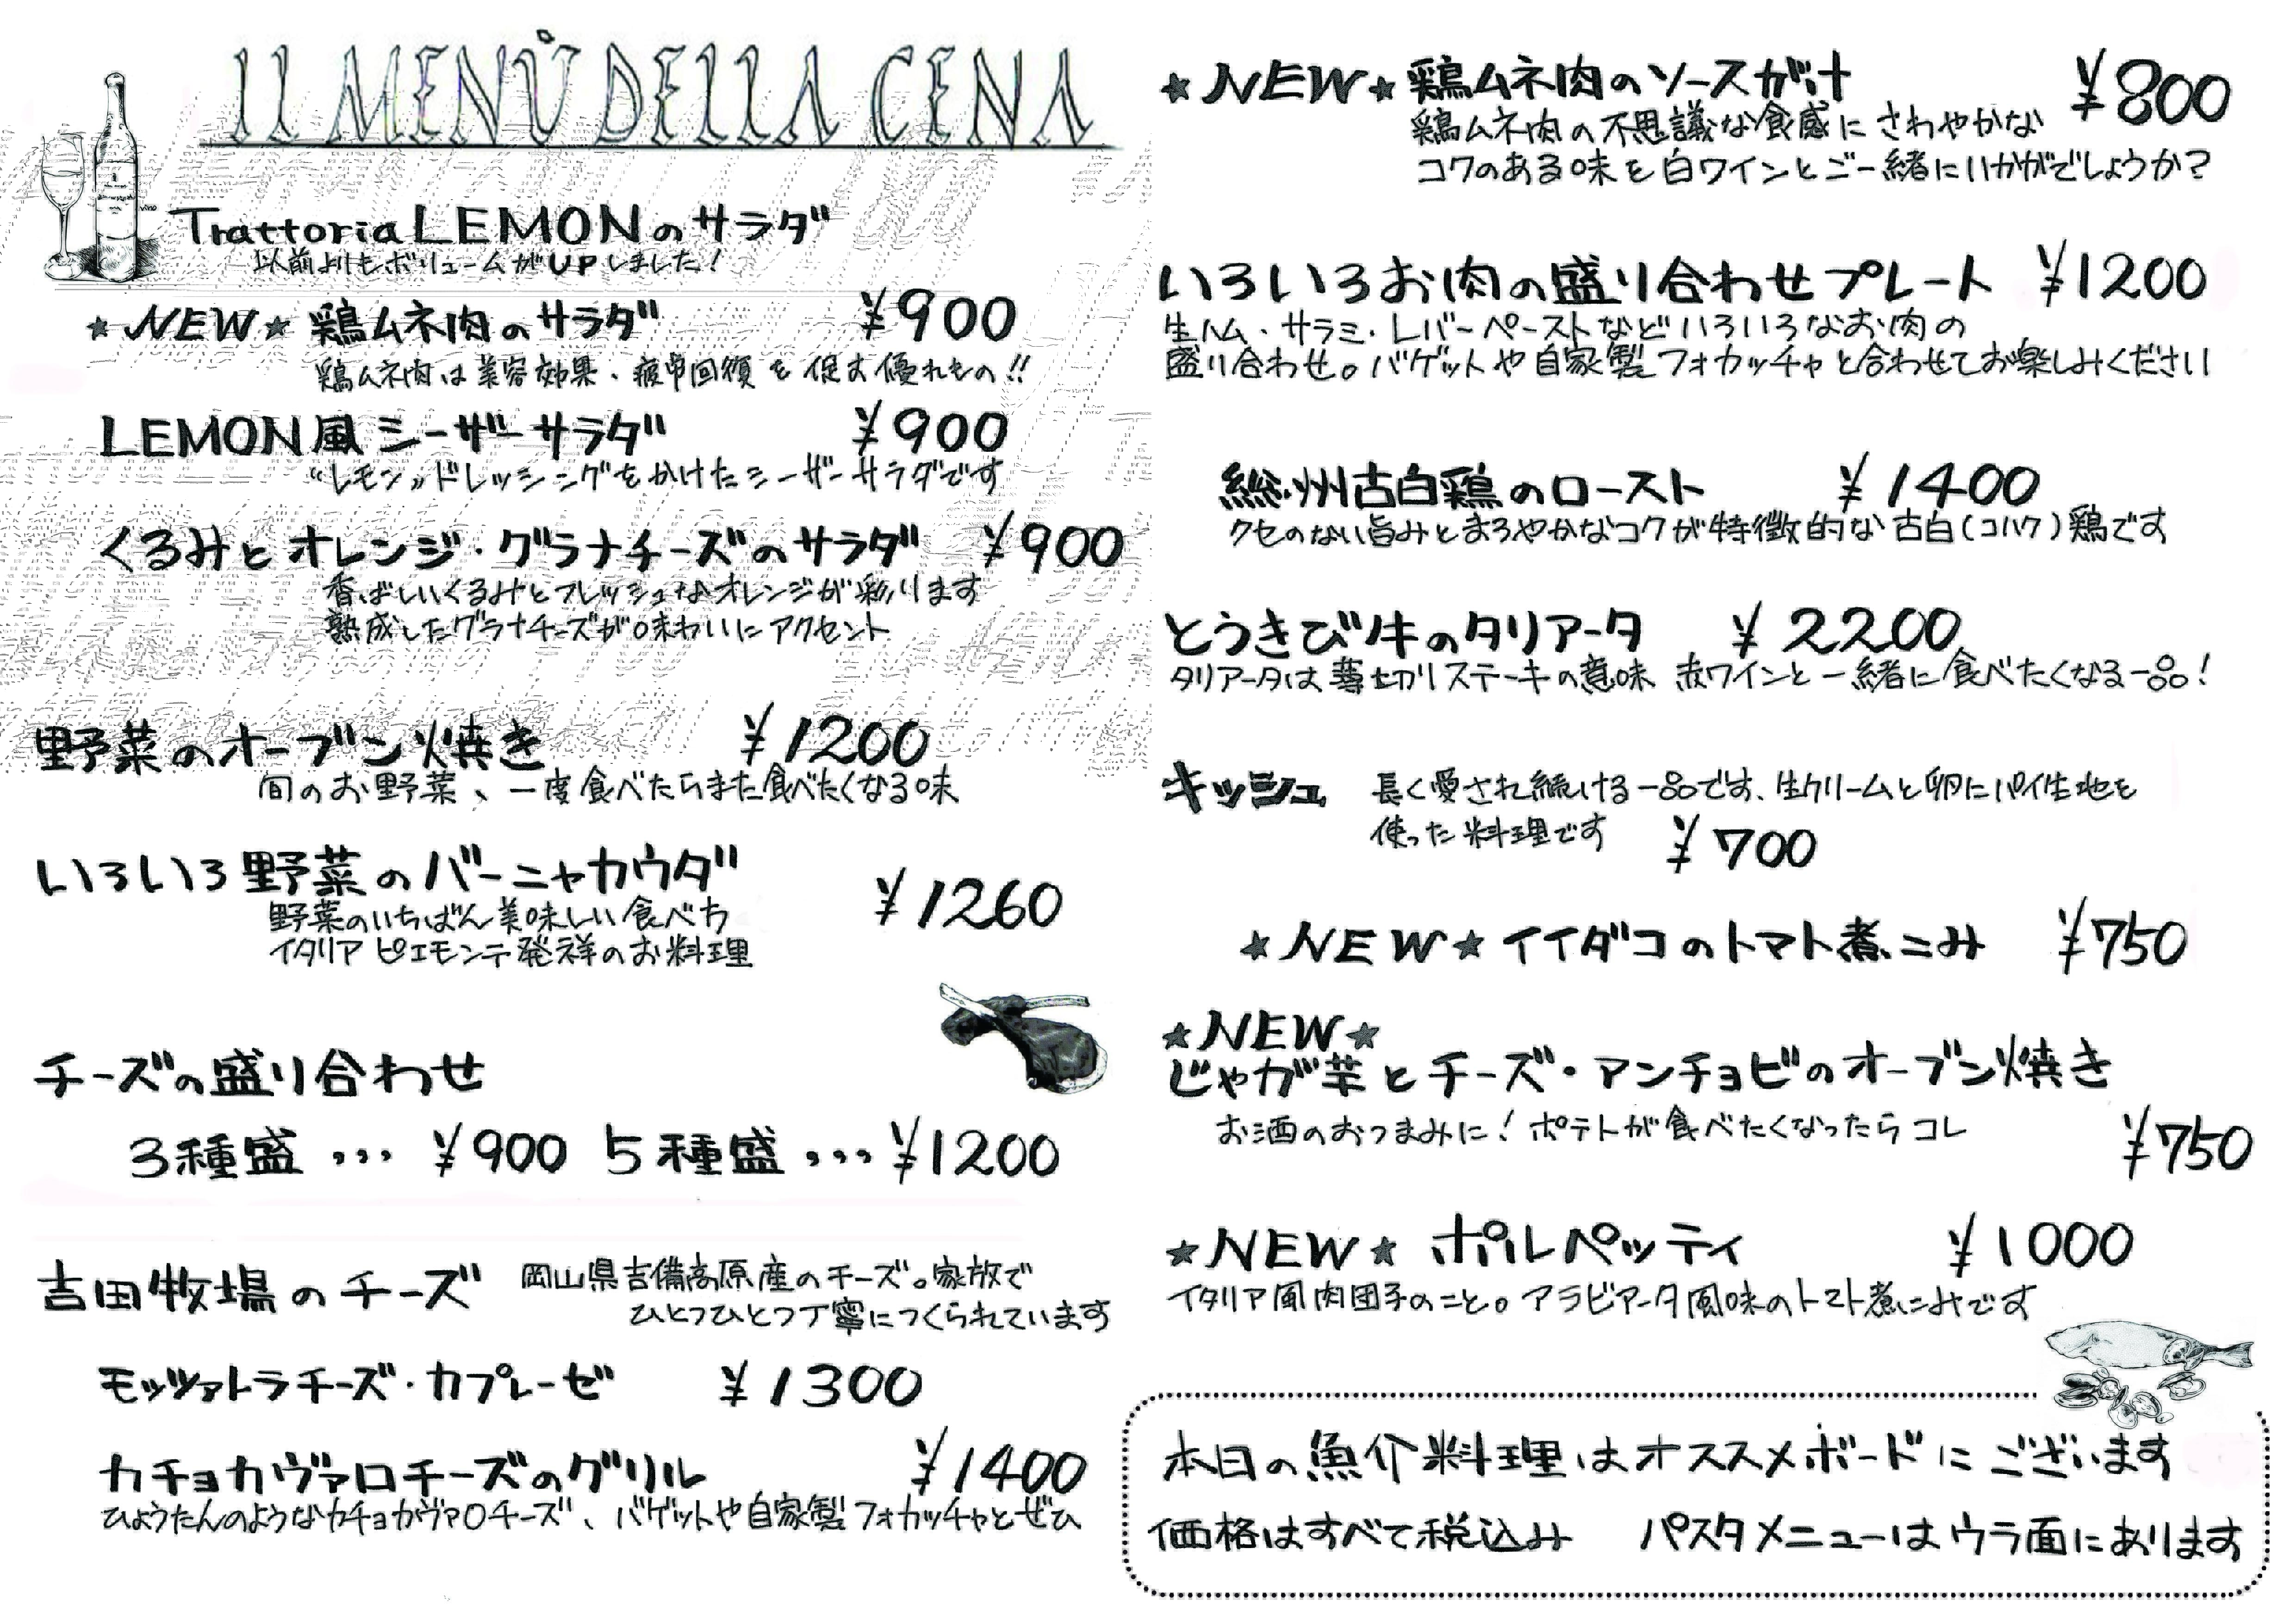 IL MENÙ DELLA CENA
vino
Trattoria LEMONのサラダ
以前よりもボリュームがUPしました！
★NEW★ 鶏ムネ肉のサラダ ¥900
鶏ムネ肉は美容効果、疲労回復を促す優れもの!!
LEMON風シーザーサラダ ¥900
“レモン”ドレッシングをかけたシーザーサラダです
くるみとオレンジ・グラナチーズのサラダ ¥900
香ばしいくるみとフレッシュなオレンジが彩ります
熟成したグラナチーズが味わいにアクセント
野菜のオーブン焼き ¥1200
旬のお野菜、一度食べたらまた食べたくなる味
いろいろ野菜のバーニャカウダ ¥1260
野菜のいちばん美味しい食べ方
イタリア ピエモンテ発祥のお料理
チーズの盛り合わせ
3種盛 ・・・ ¥900 5種盛 ・・・ ¥1200
吉田牧場のチーズ 岡山県吉備高原産のチーズ。家族で
ひとつひとつ丁寧につくられています
モッツァレラチーズ・カプレーゼ ¥1300
カチョカヴァロチーズのグリル ¥1400
ひょうたんのようなカチョカヴァロチーズ、バゲットや自家製フォカッチャとぜひ
★NEW★ 鶏ムネ肉のソースがけ ¥800
鶏ムネ肉の不思議な食感にさわやかな
コクのある味を白ワインとご一緒にいかがでしょうか？
いろいろお肉の盛り合わせプレート ¥1200
生ハム・サラミ・レバーペーストなどいろいろなお肉の
盛り合わせ。バゲットや自家製フォカッチャと合わせてお楽しみください
総州古白鶏のロースト ¥1400
クセのない旨みとまろやかなコクが特徴的な古白（コハク）鶏です
とうきび牛のタリアータ ¥2200
タリアータは薄切りステーキの意味 赤ワインと一緒に食べたくなる一品！
キッシュ 長く愛され続ける一品です、生クリームと卵にパイ生地を
使った料理です ¥700
★NEW★ イイダコのトマト煮こみ ¥750
★NEW★
じゃが芋とチーズ・アンチョビのオーブン焼き
お酒のおつまみに！ポテトが食べたくなったらコレ
¥750
★NEW★ ポルペッティ ¥1000
イタリア風肉団子のこと。アラビアータ風味のトマト煮こみです
本日の魚介料理はオススメボードにございます
価格はすべて税込み パスタメニューはウラ面にあります